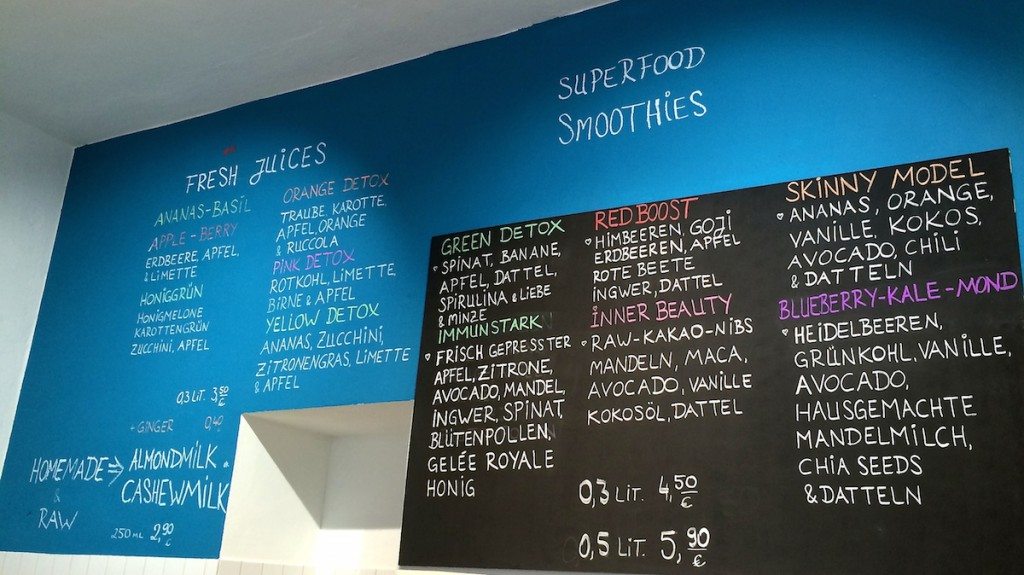 FRESH JUICES
ANANAS-BASIL
APPLE-BERRY
ERDBEERE, APFEL,
& LIMETTE
HONIGGRÜN
HONIGMELONE
KAROTTENGRÜN
ZUCCHINI, APFEL
ORANGE DETOX
TRAUBE, KAROTTE,
APFEL, ORANGE
& RUCCOLA
PINK DETOX
ROTKOHL, LIMETTE,
BIRNE & APFEL
YELLOW DETOX
ANANAS, ZUCCHINI,
ZITRONENGRAS, LIMETTE
& APFEL
0,3 LIT. 3,50 €
+ GINGER 0,40
HOMEMADE ⇒ ALMONDMILK.
& CASHEWMILK
RAW
250 ML 2,90 €
SUPERFOOD
SMOOTHIES
GREEN DETOX
SPINAT, BANANE,
APFEL, DATTEL,
SPIRULINA & LIEBE
& MINZE
IMMUNSTARK
FRISCH GEPRESSTER
APFEL, ZITRONE,
AVOCADO, MANDEL,
INGWER, SPINAT,
BLÜTENPOLLEN,
GELÉE ROYALE
HONIG
RED BOOST
HIMBEEREN, GOJI
ERDBEEREN, APFEL
ROTE BEETE
INGWER, DATTEL
INNER BEAUTY
RAW-KAKAO-NIBS
MANDELN, MACA,
AVOCADO, VANILLE
KOKOSÖL, DATTEL
SKINNY MODEL
ANANAS, ORANGE,
VANILLE, KOKOS,
AVOCADO, CHILI
& DATTELN
BLUEBERRY-KALE-MOND
HEIDELBEEREN,
GRÜNKOHL, VANILLE,
AVOCADO,
HAUSGEMACHTE
MANDELMILCH,
CHIA SEEDS
& DATTELN
0,3 LIT. 4,50 €
0,5 LIT. 5,90 €